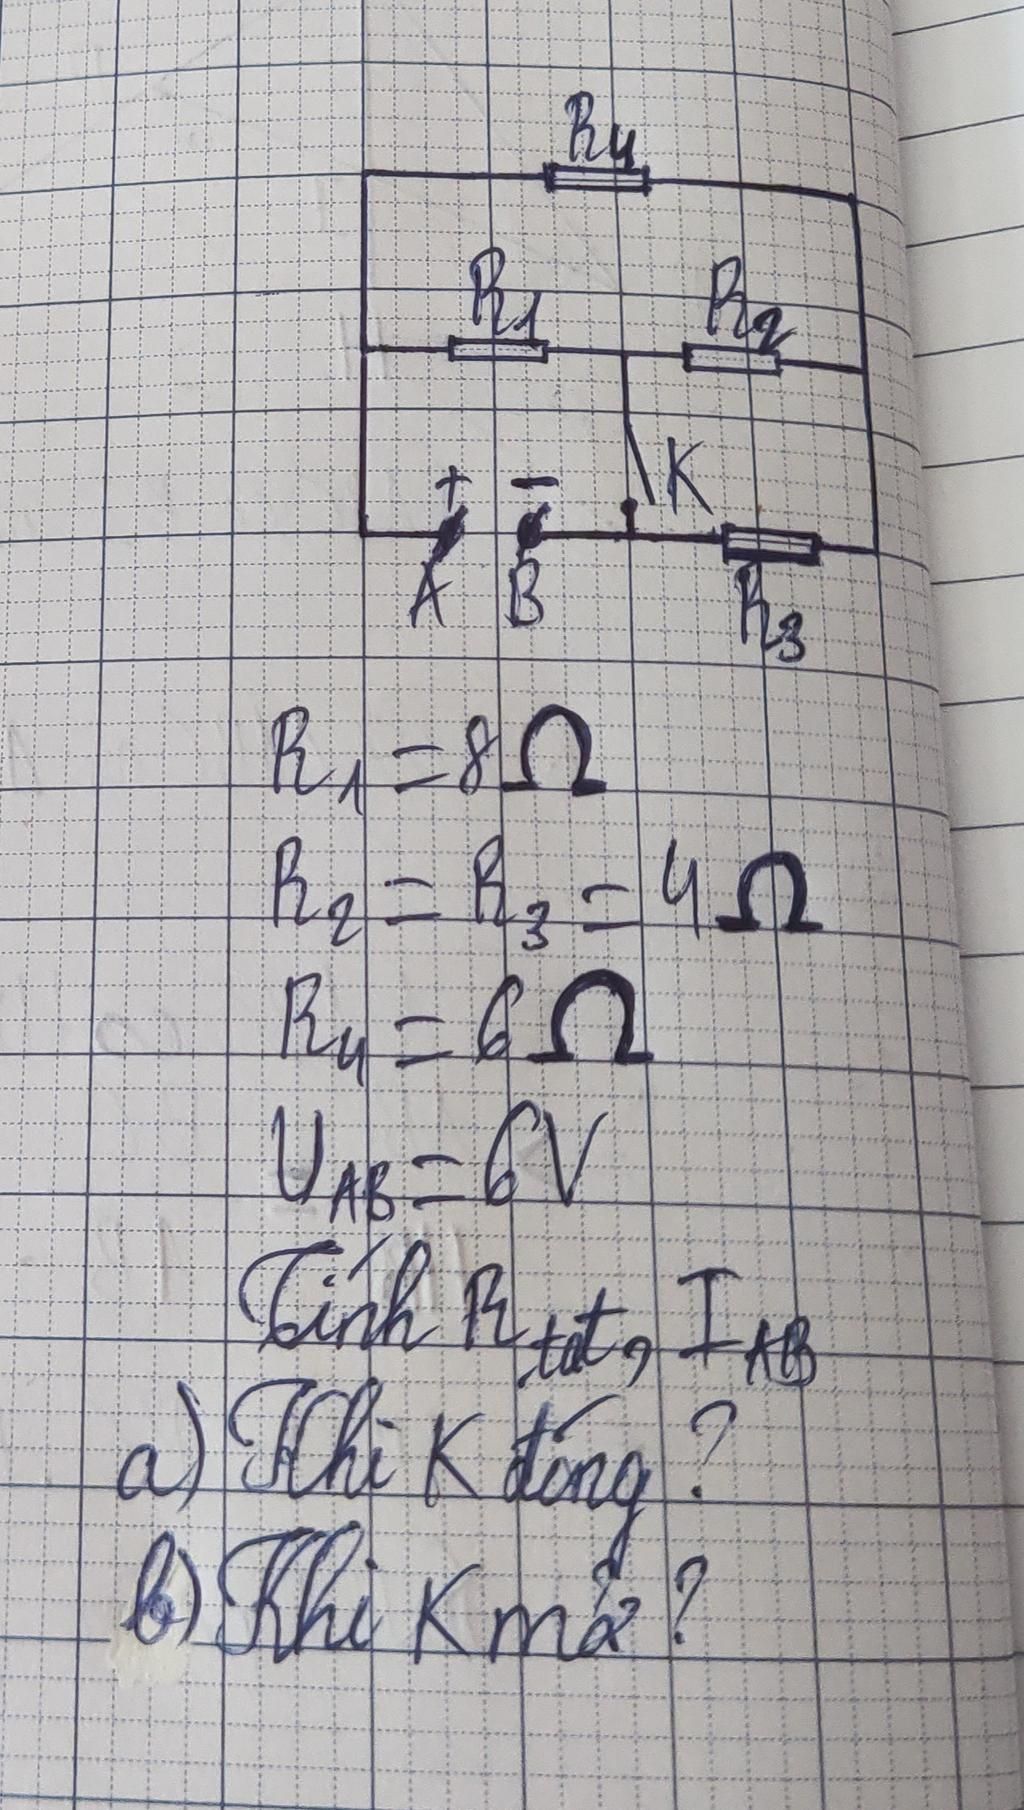 R4
R1 R2
K
+ -
A B
R3
R1 = 8 Ω
R2 = R3 = 4 Ω
R4 = 6 Ω
UAB = 6V
Tính Rtđt, IAB
a) Khi K đóng?
b) Khi K mở?